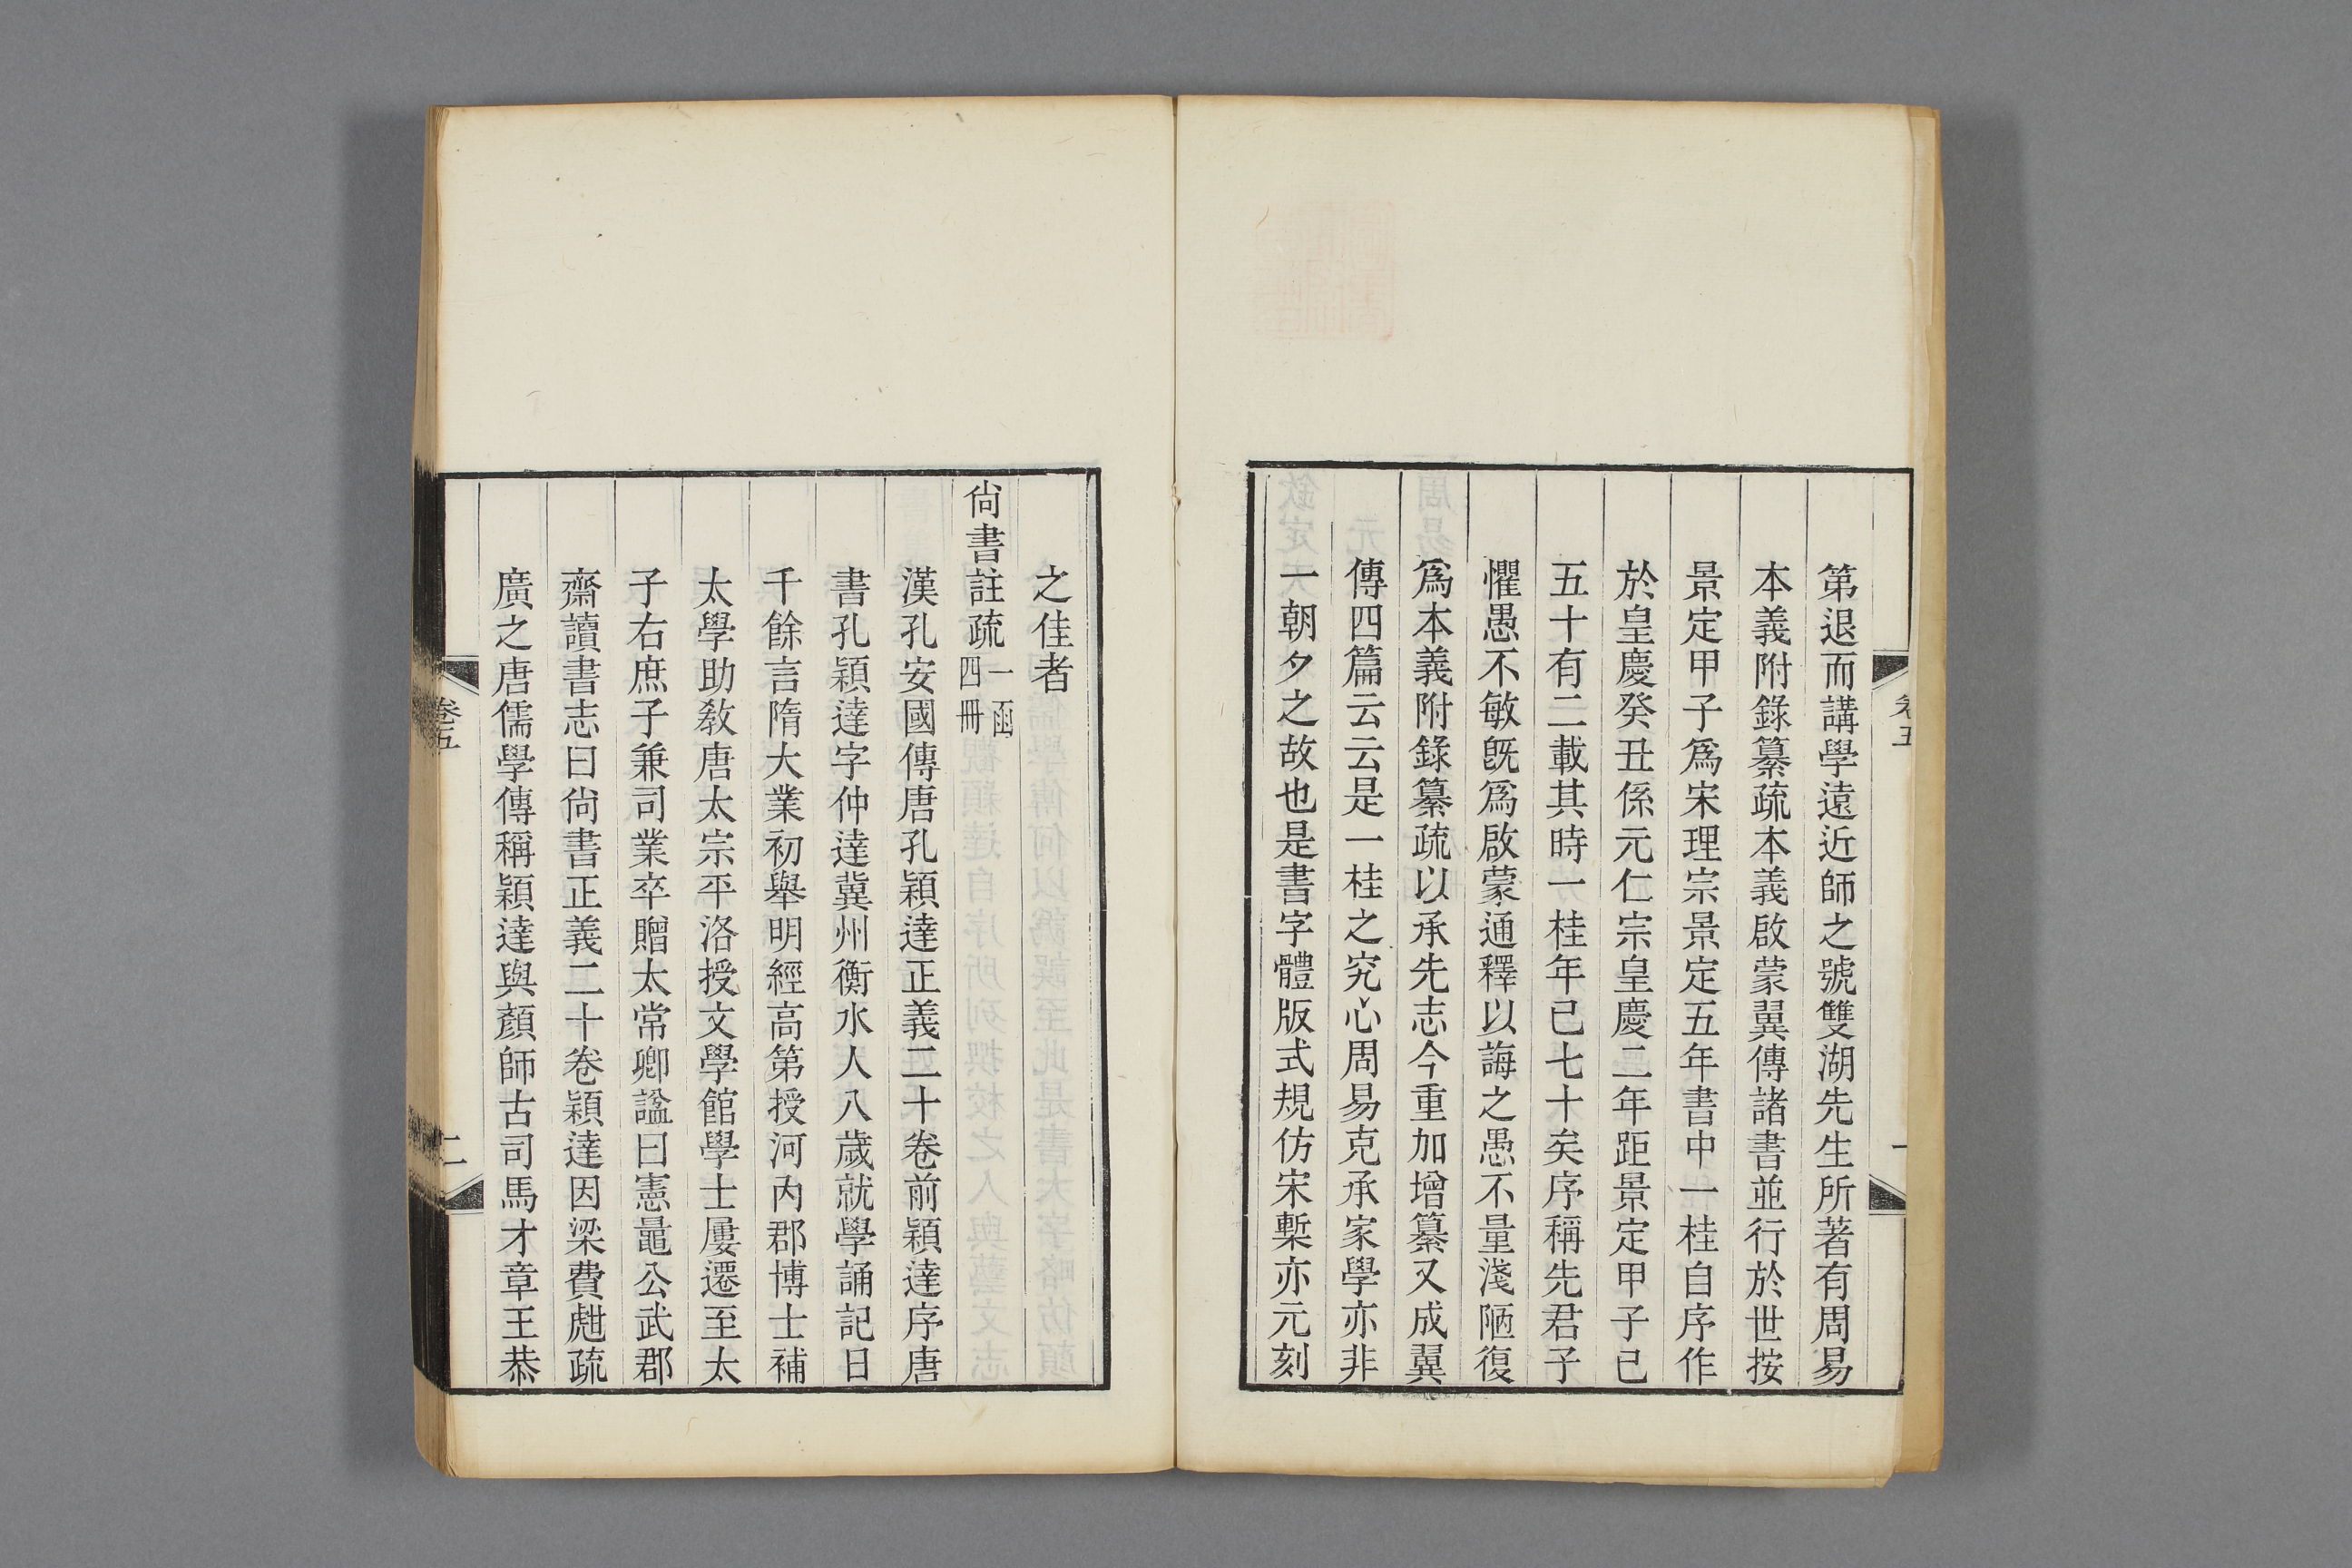 卷五
一
第退而講學遠近師之號雙湖先生所著有周易
本義附錄纂疏本義啟蒙翼傳諸書並行於世按
景定甲子爲宋理宗景定五年書中一桂自序作
於皇慶癸丑係元仁宗皇慶二年距景定甲子已
五十有二載其時一桂年已七十矣序稱先君子
懼愚不敏旣爲啟蒙通釋以誨之愚不量淺陋復
爲本義附錄纂疏以承先志今重加增纂又成翼
傳四篇云云是一桂之究心周易克承家學亦非
一朝夕之故也是書字體版式規仿宋槧亦元刻
之佳者
尙書註疏一函四冊
漢孔安國傳唐孔穎達正義二十卷前穎達序唐
書孔穎達字仲達冀州衡水人八歲就學誦記日
千餘言隋大業初舉明經高第授河內郡博士補
太學助敎唐太宗平洛授文學館學士屢遷至太
子右庶子兼司業卒贈太常卿諡曰憲鼂公武郡
齋讀書志曰尙書正義二十卷穎達因梁費甝疏
廣之唐儒學傳稱穎達與顏師古司馬才章王恭
卷五
二